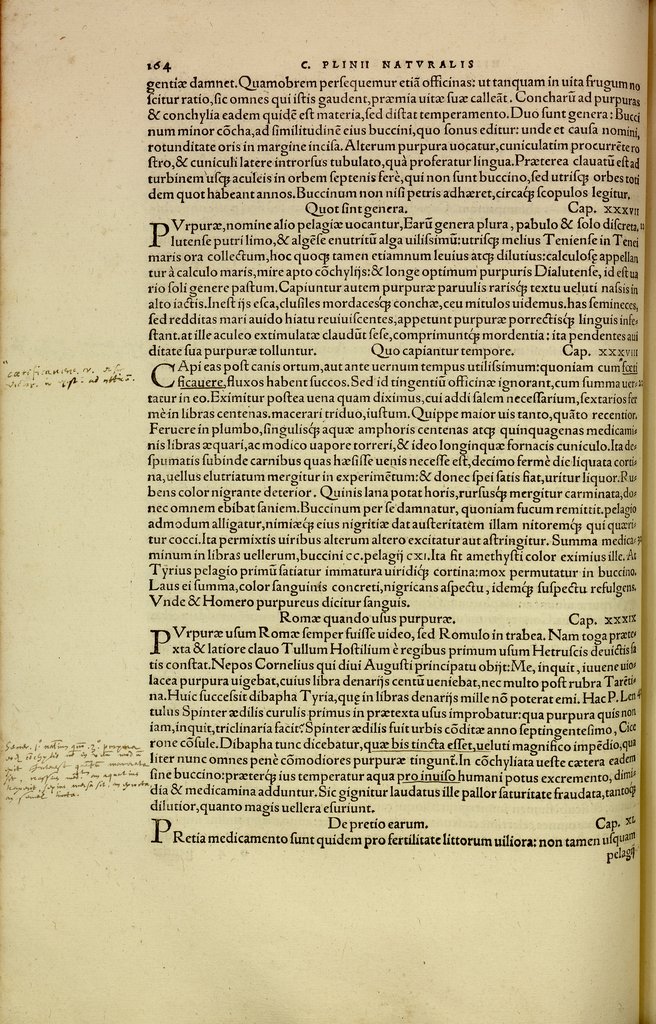 164 C. PLINII NATVRALIS
gentiæ damnet. Quamobrem persequemur etiã officinas: ut tanquam in uita frugum no
scitur ratio, sic omnes qui istis gaudent, præmia uitæ suæ calleãt. Concharũ ad purpuras
& conchylia eadem quidẽ est materia, sed distat temperamento. Duo sunt genera: Bucci
num minor cõcha, ad similitudinẽ eius buccini, quo sonus editur: unde et causa nomini,
rotunditate oris in margine incisa. Alterum purpura uocatur, cuniculatim procurrẽte ro
stro, & cuniculi latere introrsus tubulato, quà proferatur lingua. Præterea clauatũ est ad
turbinem usq; aculeis in orbem septenis ferè, qui non sunt buccino, sed utrisq; orbes toti
dem quot habeant annos. Buccinum non nisi petris adhæret, circaq; scopulos legitur.
Quot sint genera. Cap. xxxvii
PVrpuræ, nomine alio pelagiæ uocantur, Earũ genera plura, pabulo & solo discreta,
lutense putri limo, & algẽse enutritũ alga uilissimũ: utrisq; melius Teniense in Tenei
maris ora collectum, hoc quoq; tamen etiamnum leuius atq; dilutius: calculosę appellan
tur à calculo maris, mire apto cõchylijs: & longe optimum purpuris Dialutense, id est ua
rio soli genere pastum. Capiuntur autem purpuræ paruulis rarisq; textu ueluti nassis in
alto iactis. Inest ijs esca, clusiles mordacesq; conchæ, ceu mitulos uidemus. has semineces,
sed redditas mari auido hiatu reuiuiscentes, appetunt purpuræ porrectisq; linguis infe
stant. at ille aculeo extimulatæ claudũt sese, comprimuntq; mordentia: ita pendentes aui
ditate sua purpuræ tolluntur. Quo capiantur tempore. Cap. xxxviii
CApi eas post canis ortum, aut ante uernum tempus utilissimum: quoniam cum forti
ficauere, fluxos habent succos. Sed id tingentiũ officinæ ignorant, cum summa uer
tatur in eo. Eximitur postea uena quam diximus, cui addi salem necessarium, sextarios fer
mè in libras centenas. macerari triduo, iustum. Quippe maior uis tanto, quãto recentior.
Feruere in plumbo, singulisq; aquæ amphoris centenas atq; quinquagenas medicami
nis libras æquari, ac modico uapore torreri, & ideo longinquæ fornacis cuniculo. Ita de
spumatis subinde carnibus quas hæsisse uenis necesse est, decimo fermè die liquata corti
na, uellus elutriatum mergitur in experimẽtum: & donec spei satis fiat, uritur liquor. Ru
bens color nigrante deterior. Quinis lana potat horis, rursusq; mergitur carminata, do
nec omnem ebibat saniem. Buccinum per se damnatur, quoniam fucum remittit. pelagio
admodum alligatur, nimiæq; eius nigritiæ dat austeritatem illam nitoremq; qui quæri
tur cocci. Ita permixtis uiribus alterum altero excitatur aut astringitur. Summa medica
minum in libras uellerum, buccini cc. pelagij cxi. Ita fit amethysti color eximius ille. At
Tyrius pelagio primũ satiatur immatura uiridiq; cortina: mox permutatur in buccino.
Laus ei summa, color sanguinis concreti, nigricans aspectu, idemq; suspectu refulgens.
Vnde & Homero purpureus dicitur sanguis.
Romæ quando usus purpuræ. Cap. xxxix
PVrpuræ usum Romæ semper fuisse uideo, sed Romulo in trabea. Nam toga præte
xta & latiore clauo Tullum Hostilium è regibus primum usum Hetruscis deuictis sa
tis constat. Nepos Cornelius qui diui Augusti principatu obijt: Me, inquit, iuuene uio
lacea purpura uigebat, cuius libra denarijs centũ ueniebat, nec multo post rubra Tarẽti
na. Huic successit dibapha Tyria, quę in libras denarijs mille nõ poterat emi. Hac P. Len
tulus Spinter ædilis curulis primus in prætexta usus improbatur: qua purpura quis non
iam, inquit, triclinaria facit? Spinter ædilis fuit urbis cõditæ anno septingentesimo, Cice
rone cõsule. Dibapha tunc dicebatur, quæ bis tincta esset, ueluti magnifico impẽdio, qua
liter nunc omnes penè cõmodiores purpuræ tingunt̃. In cõchyliata ueste cætera eadem
sine buccino: præterq; ius temperatur aqua pro inuiso humani potus excremento, dimi
dia & medicamina adduntur. Sic gignitur laudatus ille pallor saturitate fraudata, tantoq;
dilutior, quanto magis uellera esuriunt.
De pretio earum. Cap. xl
PRetia medicamento sunt quidem pro fertilitate littorum uiliora: non tamen usquam
pelagij